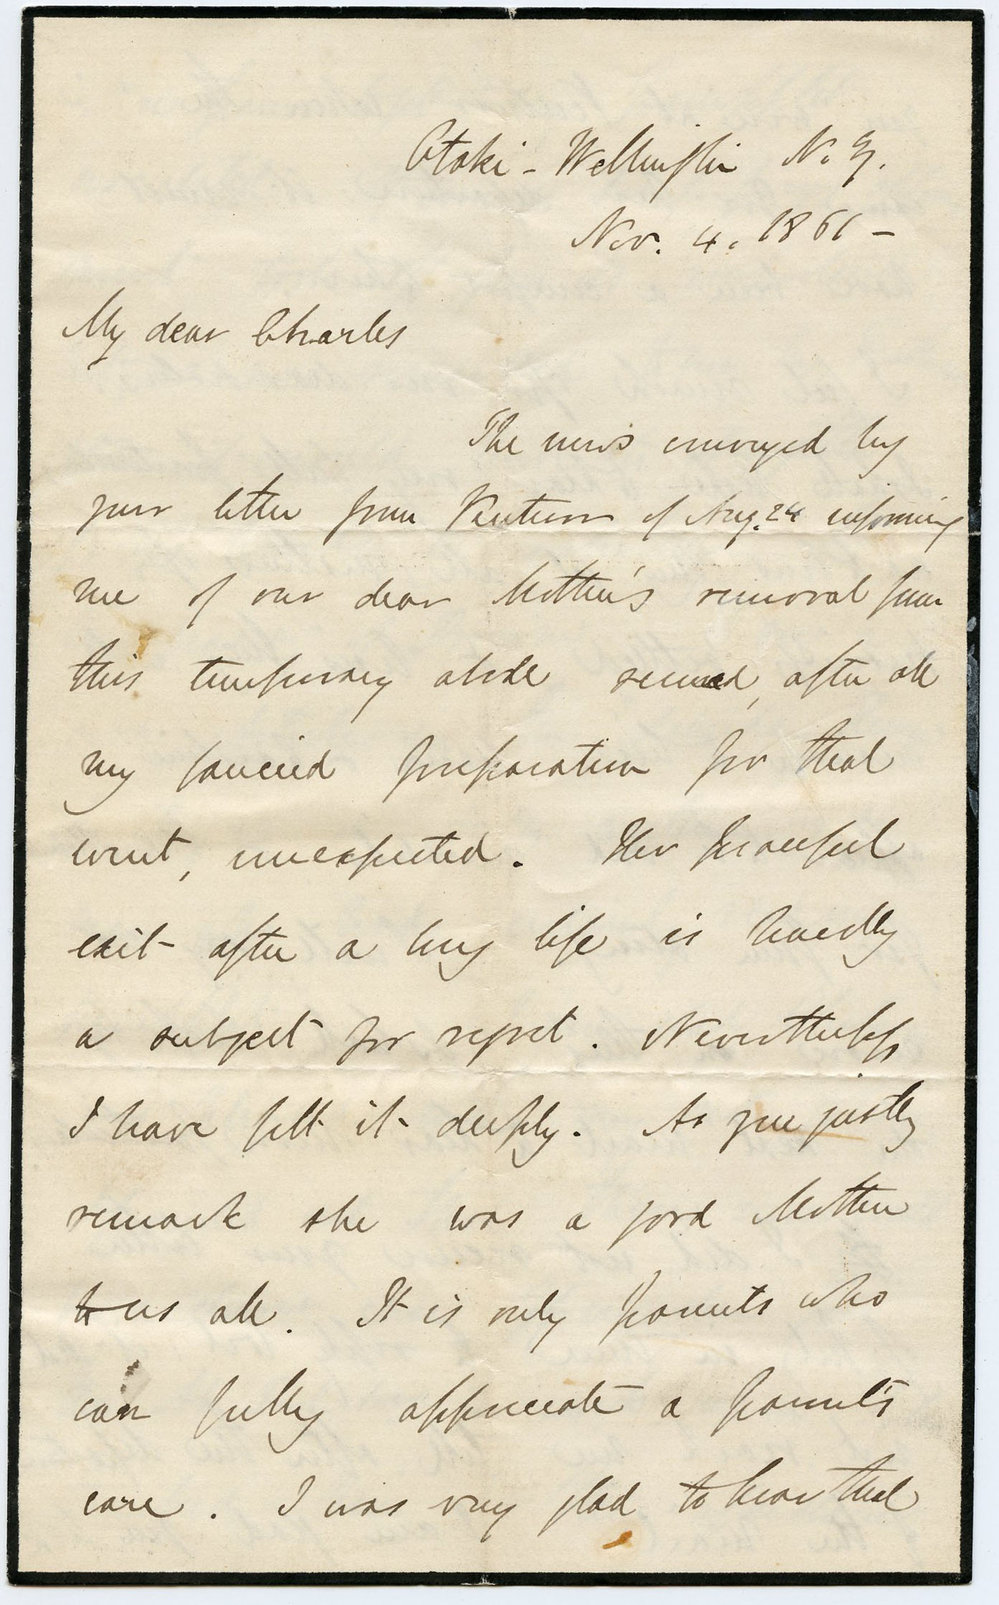 Otaki - Wellington N. Z.
Nov. 4. 1861 -
My dear Charles
The news conveyed by
your letter from Ventnor of Aug. 24 informing
me of our dear Mother's removal from
this temporary abode seemed, after all
my fancied preparation for that
event, unexpected. Her peaceful
exit after a long life is hardly
a subject for regret. Nevertheless
I have felt it deeply. As you justly
remark she was a good Mother
to us all. It is only parents who
can fully appreciate a parent's
care. I was very glad to hear that